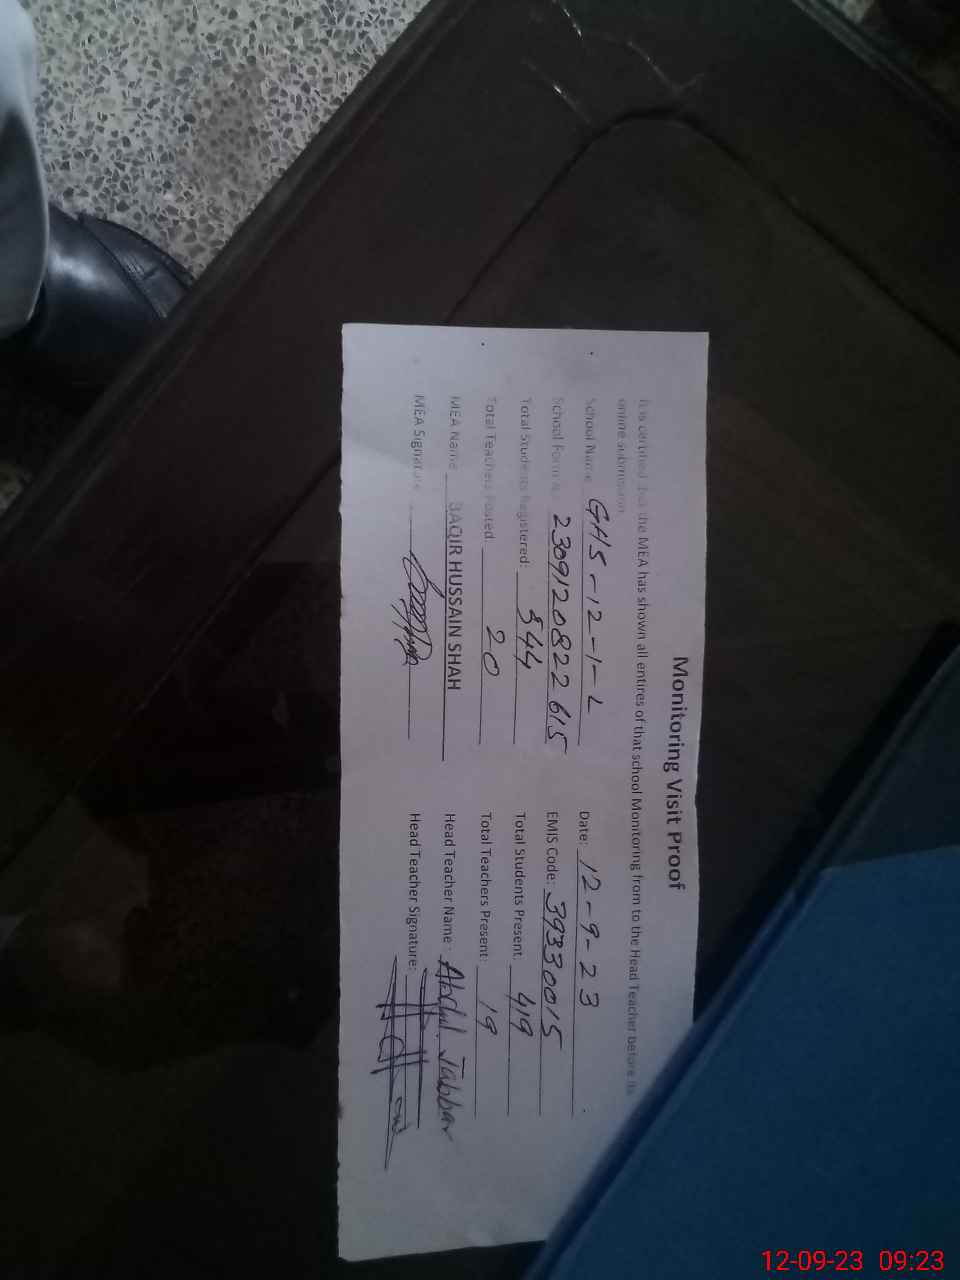 Monitoring Visit Proof
It is certified that the MEA has shown all entires of that school Monitoring from to the Head Teacher before its
online submission
School Name GHS-12-1-L Date: 12-9-23
School Form 2309120822615 EMIS Code: 39330015
Total Students Registered: 544 Total Students Present: 419
Total Teachers Posted: 20 Total Teachers Present: 19
MEA Name BAQIR HUSSAIN SHAH Head Teacher Name: Abdul Jabbar
MEA Signature Head Teacher Signature:
12-09-23 09:23